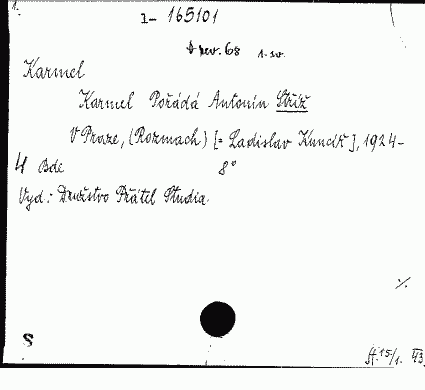 1.
1- 165101
rev. 68 1. sv.
Karmel
Karmel Pořádá Antonín Stříž
V Praze, (Rozmach) [= Ladislav Kuncíř], 1924-
4 Bde 8°
Vyd.: Družstvo Přátel Studia.
%
S
H. 15/1. 43